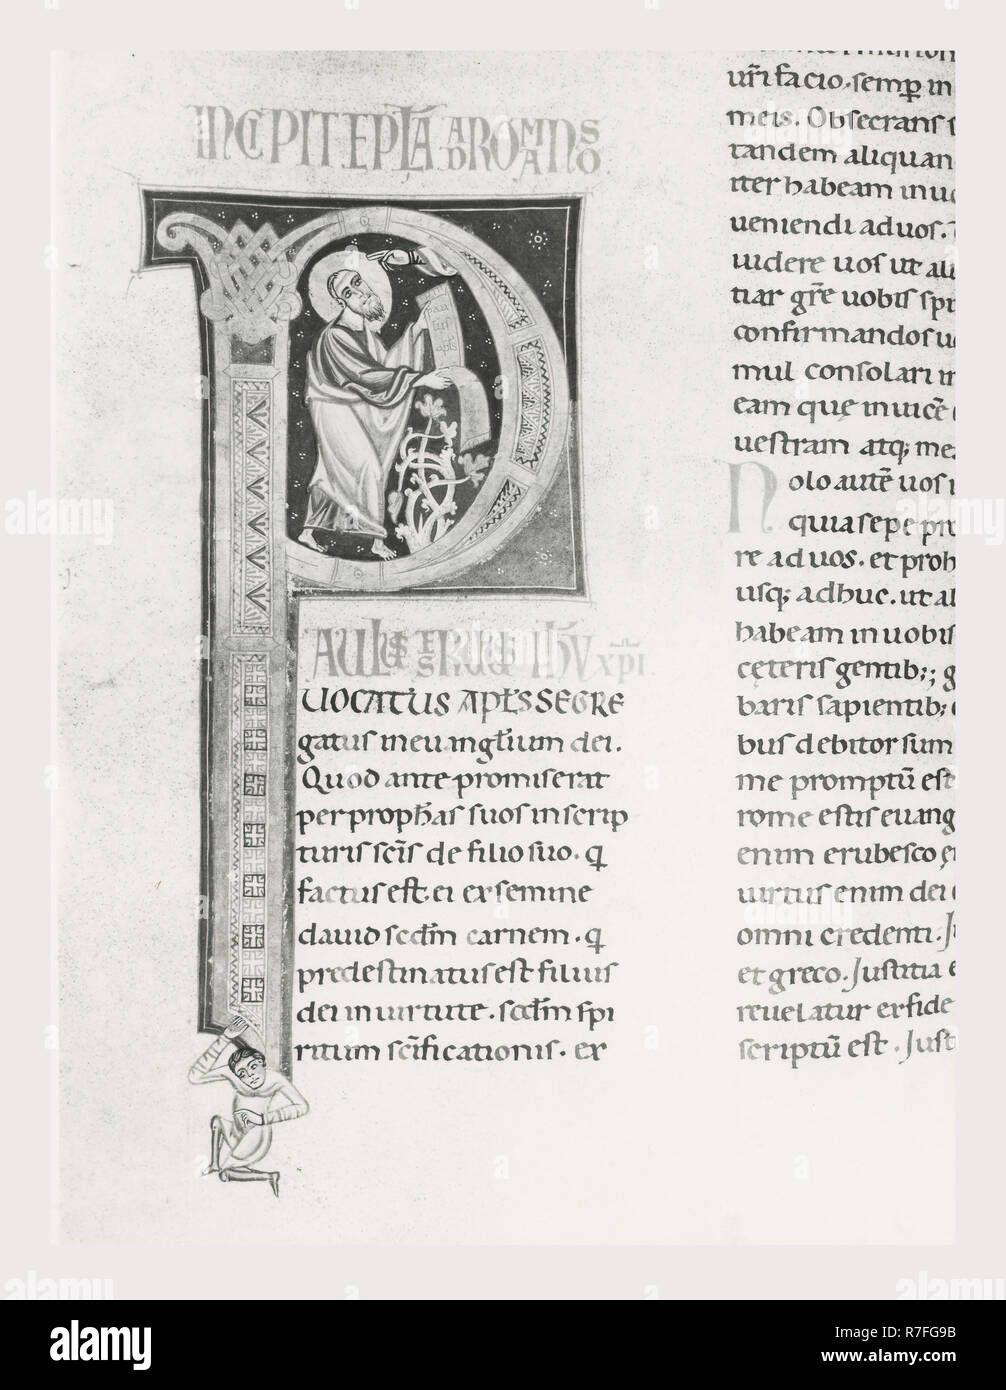 INCIPIT EPLA AD ROMANOS
PAULUS SERVUS IHV XPI
UOCATUS APLS SEGRE
gatus in euanglium dei.
Quod ante promiserat
per prophas suos in scrip
turis scis de filio suo. q
factus est ei ex semine
dauid scdm carnem. q
predestinatus est filius
dei in uirtute. scdm spi
ritum scificationis. ex
uri facio. semp in
meis. Obsecrans s
tandem aliquan
iter habeam in uo
ueniendi ad uos.
uidere uos ut ali
tiar gre uobis spi
confirmandos u
mul consolari in
eam que inuice
uestram atq; me
Nolo aute uos
quia sepe pro
re ad uos. et proh
usq; adhuc. ut al
habeam in uobis
ceteris gentib;; g
baris sapientib;
bus debitor sum
me promptu est
rome estis euang
enim erubesco e
uirtus enim dei
omni credenti. Ju
et greco. Justitia e
reuelatur ex fide
scriptu est. Just
pau
lus
apls
alamy
a
alamy
www.alamy.com
Image ID: R7FG9B